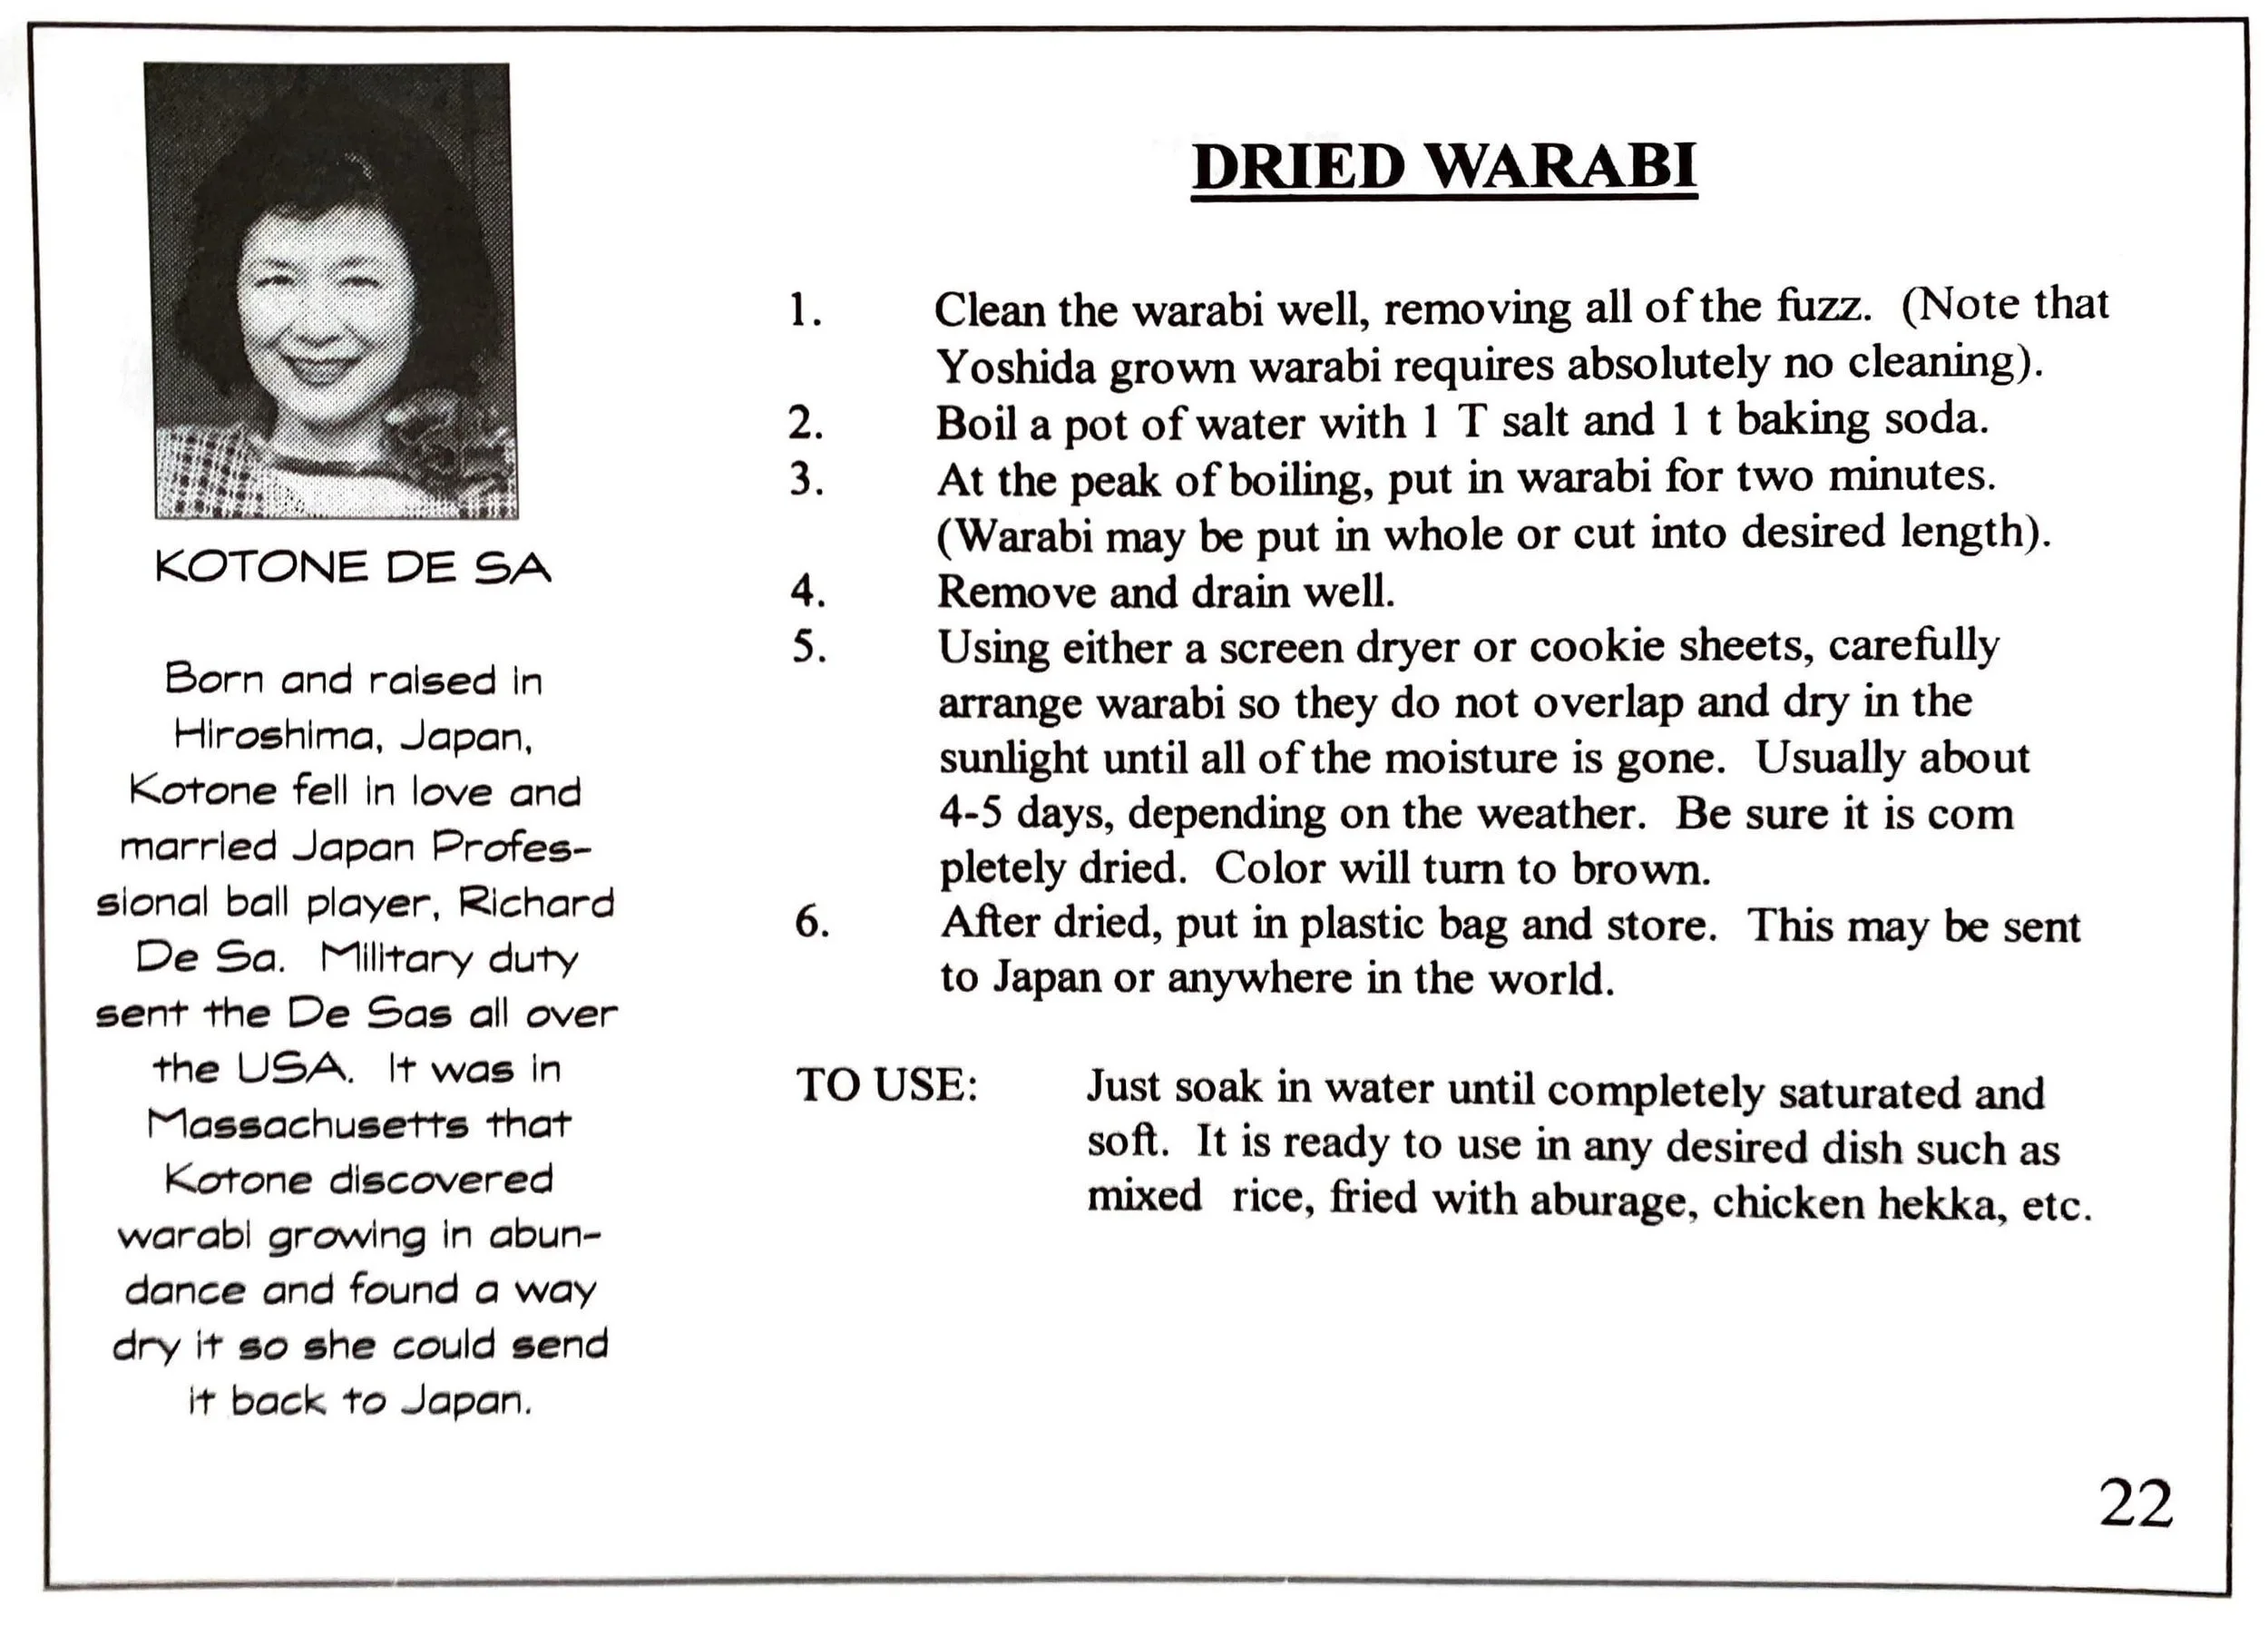 KOTONE DE SA
Born and raised in
Hiroshima, Japan,
Kotone fell in love and
married Japan Profes-
sional ball player, Richard
De Sa.  Military duty
sent the De Sas all over
the USA.  It was in
Massachusetts that
Kotone discovered
warabi growing in abun-
dance and found a way
dry it so she could send
it back to Japan.
DRIED WARABI
1. Clean the warabi well, removing all of the fuzz.  (Note that
Yoshida grown warabi requires absolutely no cleaning).
2. Boil a pot of water with 1 T salt and 1 t baking soda.
3. At the peak of boiling, put in warabi for two minutes.
(Warabi may be put in whole or cut into desired length).
4. Remove and drain well.
5. Using either a screen dryer or cookie sheets, carefully
arrange warabi so they do not overlap and dry in the
sunlight until all of the moisture is gone.  Usually about
4-5 days, depending on the weather.  Be sure it is com
pletely dried.  Color will turn to brown.
6. After dried, put in plastic bag and store.  This may be sent
to Japan or anywhere in the world.
TO USE: Just soak in water until completely saturated and
soft.  It is ready to use in any desired dish such as
mixed  rice, fried with aburage, chicken hekka, etc.
22